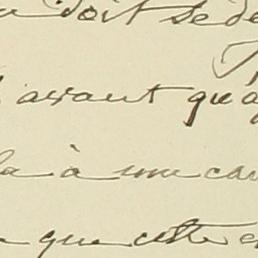 doit se dé
avant qu'a
la à une cau
que cette e